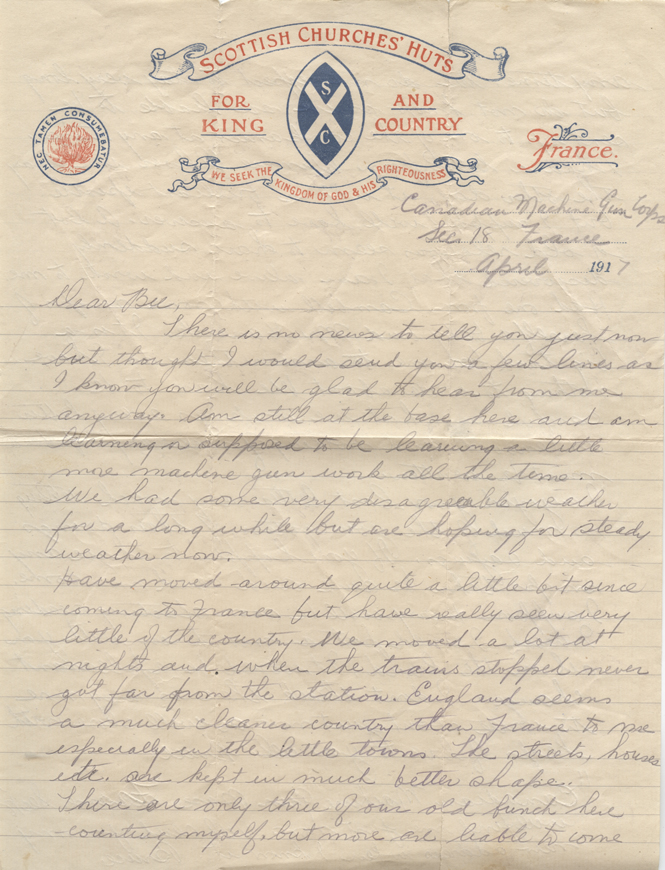 SCOTTISH CHURCHES' HUTS
FOR KING AND COUNTRY
S C
NEC TAMEN CONSUMEBATUR
WE SEEK THE KINGDOM OF GOD & HIS RIGHTEOUSNESS
France.
Canadian Machine Gun Corps
Sec. 18 France
April 1917
Dear Bee,
There is no news to tell you just now
but thought I would send you a few lines as
I know you will be glad to hear from me
anyway. Am still at the base here and am
learning or supposed to be learning a little
more machine gun work all the time.
We had some very disagreeable weather
for a long while but are hoping for steady
weather now.
Have moved around quite a little bit since
coming to France but have really seen very
little of the country. We moved a lot at
nights and when the trains stopped never
got far from the station. England seems
a much cleaner country than France to me
especially in the little towns. The streets, houses
etc. are kept in much better shape.
There are only three of our old bunch here
-counting myself, but more are liable to come